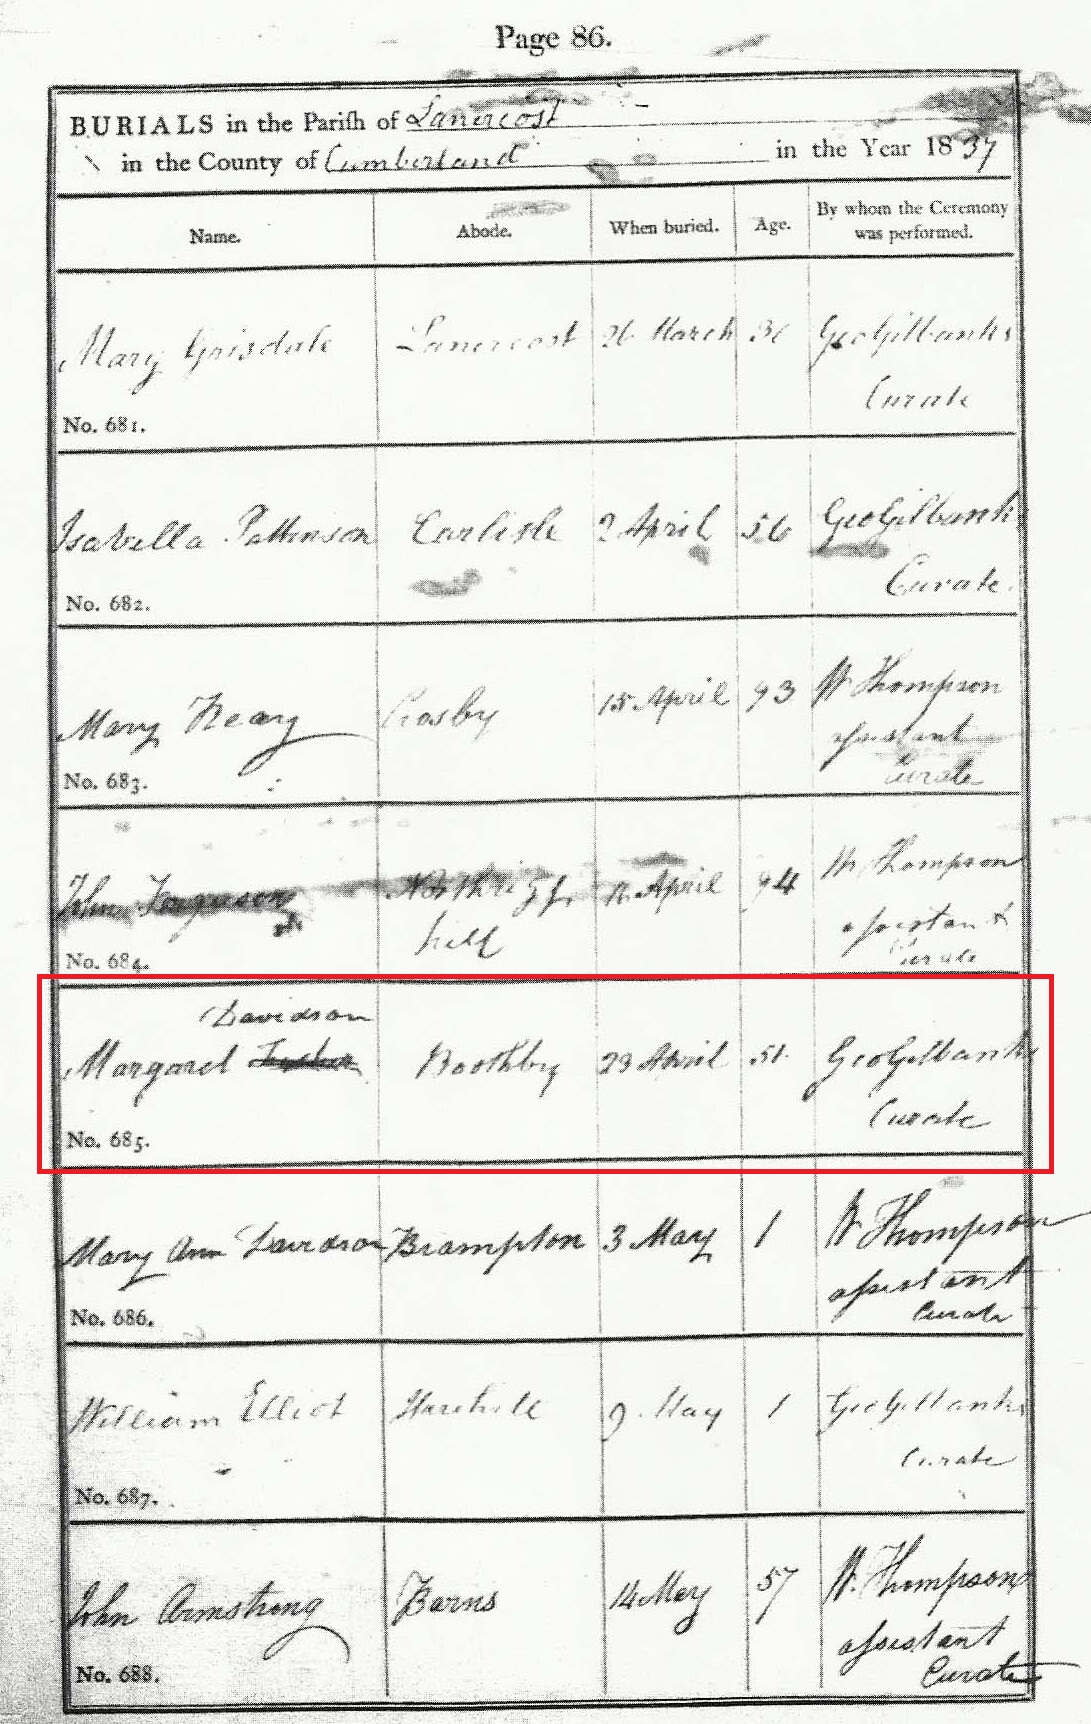 Page 86.
BURIALS in the Parish of Lanercost
in the County of Cumberland in the Year 1837
Name. Abode. When buried. Age. By whom the Ceremony
was performed.
Mary Grisdale Lanercost 26 March Geo Gilbanks
Curate
No. 681.
Isabella Pattinson Carlisle 2 April 56 Geo Gilbanks
Curate.
No. 682.
Mary Crosby 15 April 93 W Thompson
assistant
Curate
No. 683.
John Ferguson Northrigg April 94 W Thompson
hill assistant
Curate
No. 684.
Davidson
Margaret Boothby 29 April 51 Geo Gilbanks
Curate
No. 685.
Mary Ann Davidson Brampton 3 May 1 W Thompson
assistant
Curate
No. 686.
William Elliot Harehill 9 May 1 Geo Gilbanks
Curate
No. 687.
John Armstrong Barns 14 May 57 W. Thompson
assistant
Curate
No. 688.